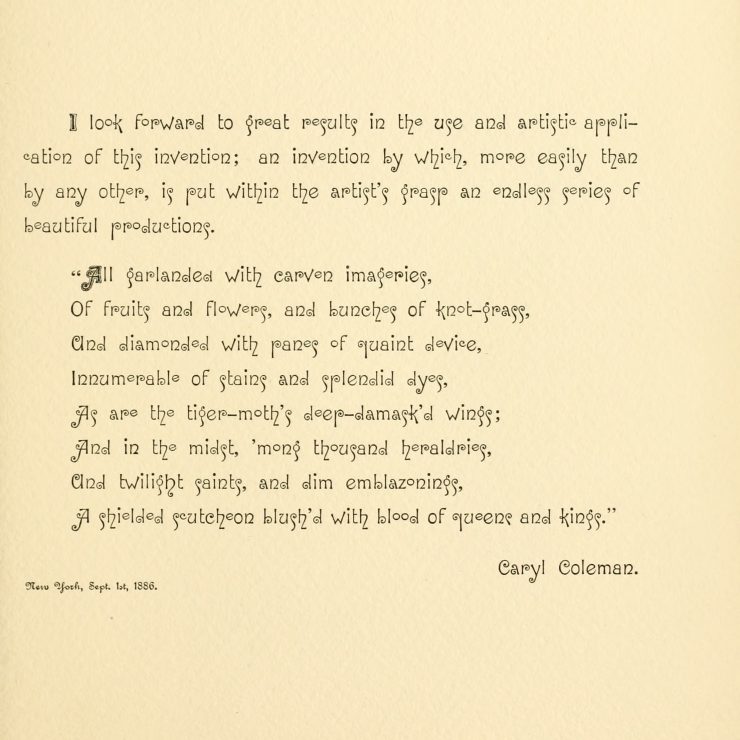 I look forward to great results in the use and artistic appli-
cation of this invention; an invention by which, more easily than
by any other, is put within the artist's grasp an endless series of
beautiful productions.
“All garlanded with carven imageries,
Of fruits and flowers, and bunches of knot-grass,
And diamonded with panes of quaint device,
Innumerable of stains and splendid dyes,
As are the tiger-moth's deep-damask'd wings;
And in the midst, 'mong thousand heraldries,
And twilight saints, and dim emblazonings,
A shielded scutcheon blush'd with blood of queens and kings.”
Caryl Coleman.
New York, Sept. 1st, 1886.